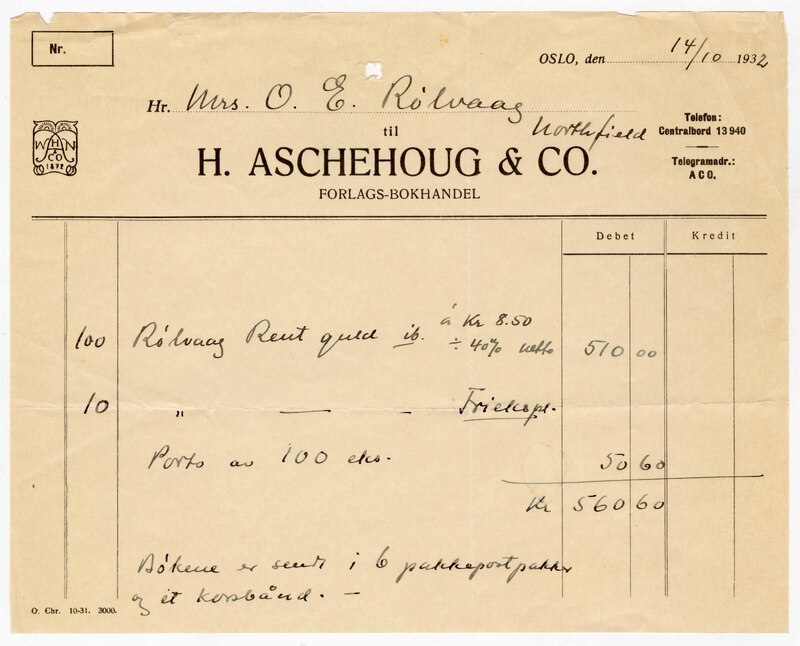 Nr.
OSLO, den 14/10 1932
Hr. Mrs. O. E. Rölvaag
Northfield
til
H. ASCHEHOUG & CO.
FORLAGS-BOKHANDEL
Telefon:
Centralbord 13 940
Telegramadr.:
ACO.
W H N
A
& CO
1872
Debet Kredit
100 Rölvaag Rent guld ib. à Kr 8.50
÷ 40% netto 510 00
10 " — - Friekspl.
Porto av 100 eks. 50 60
Kr 560 60
Bökene er sendt i 6 pakkepostpakker
og ét korsbånd. —
O. Chr. 10-31. 3000.